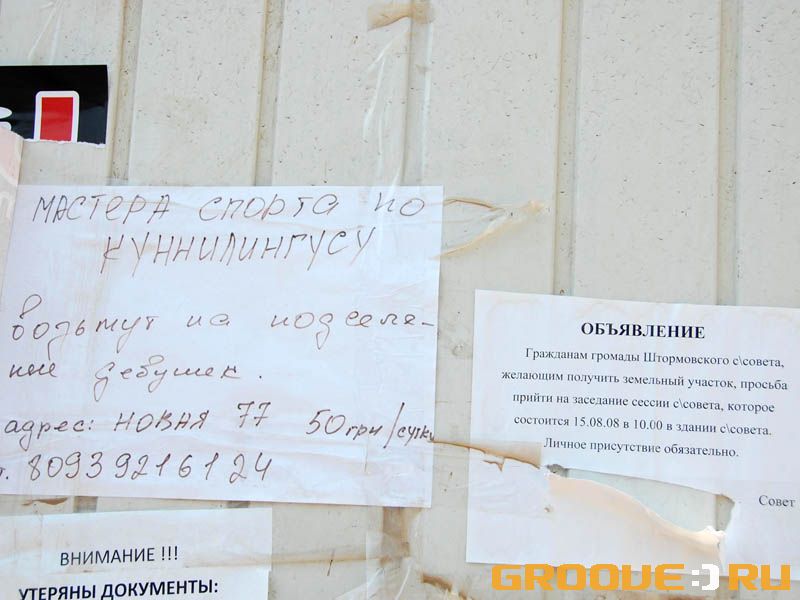 МАСТЕРА СПОРТА ПО
КУННИЛИНГУСУ
возьмут на подселе-
ние девушек.
адрес: НОВАЯ 77 50грн/сутки
т. 80939216124
ВНИМАНИЕ !!!
УТЕРЯНЫ ДОКУМЕНТЫ:
ОБЪЯВЛЕНИЕ
Гражданам громады Штормовского с\совета,
желающим получить земельный участок, просьба
прийти на заседание сессии с\совета, которое
состоится 15.08.08 в 10.00 в здании с\совета.
Личное присутствие обязательно.
Совет
GROOVE:)RU